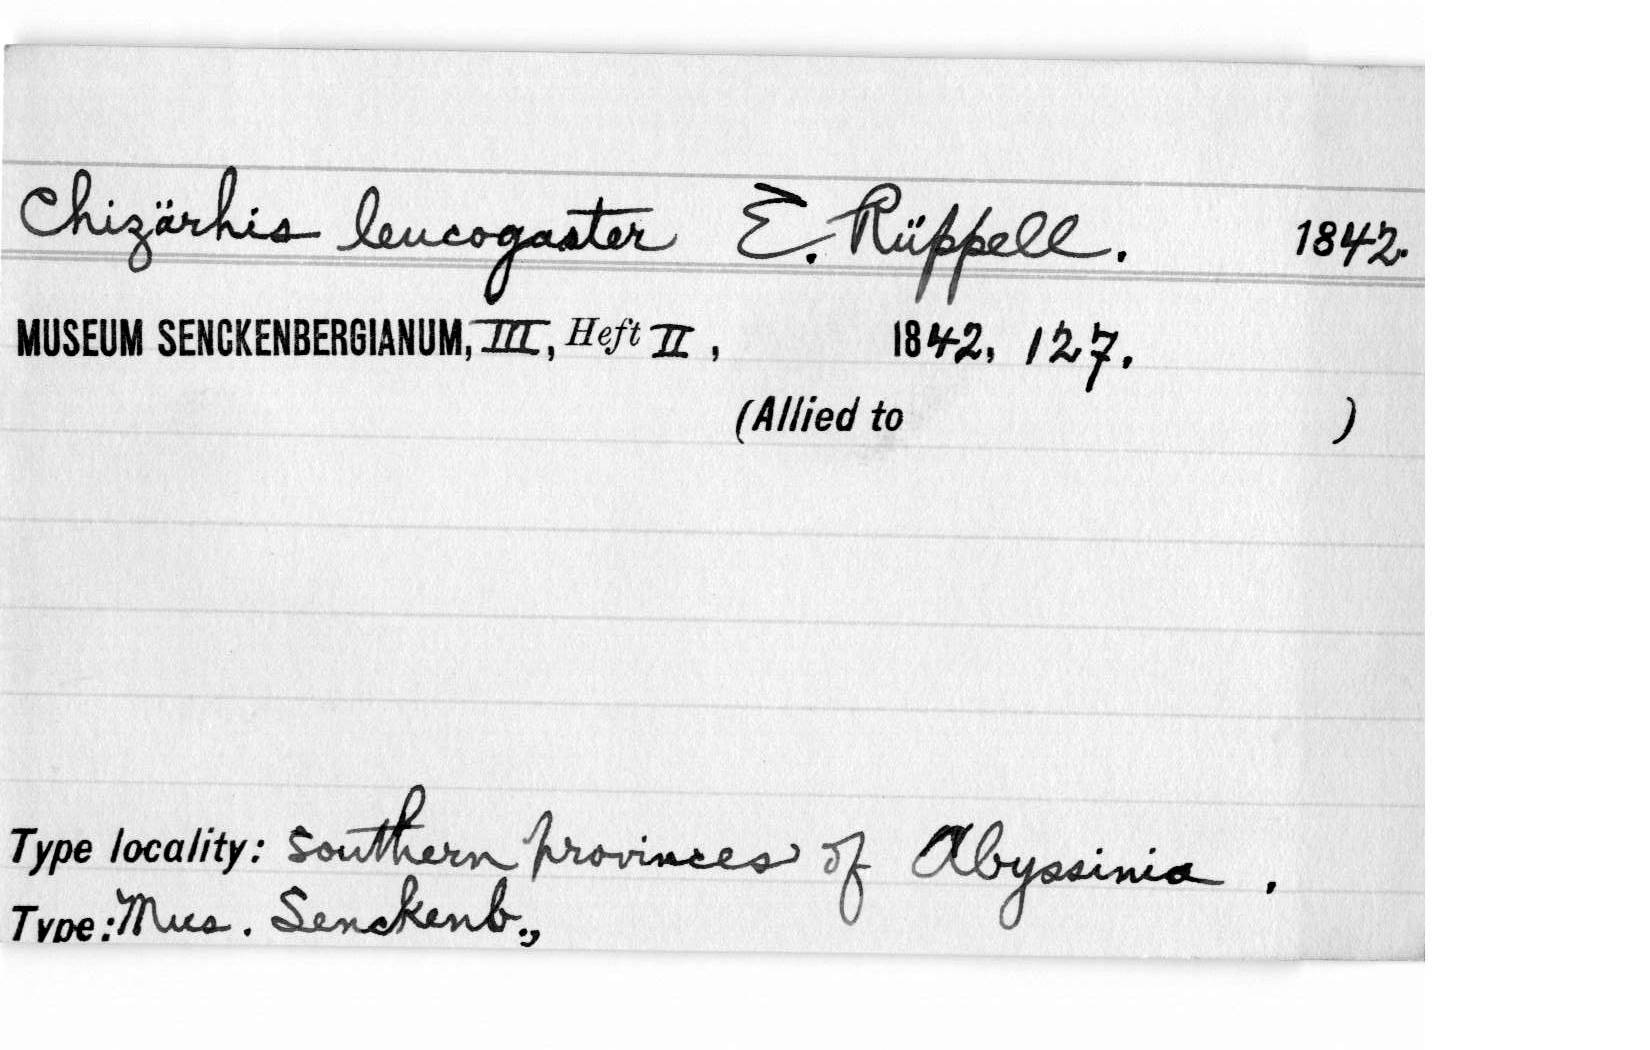 Chizärhis leucogaster E. Rüppell. 1842.
MUSEUM SENCKENBERGIANUM, III, Heft II, 1842, 127.
(Allied to )
Type locality: Southern provinces of Abyssinia.
Type: Mus. Senckenb.,